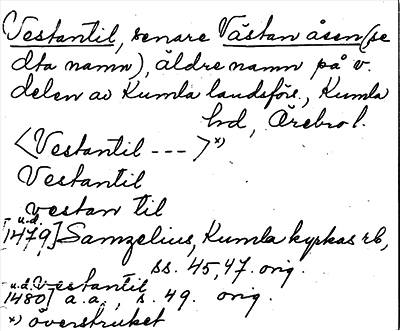 Vestantil, senare Västan åsen (se
dta namn), äldre namn på v.
delen av Kumla landsförs., Kumla
hd, Örebro l.
<Vestantil --->x)
Vestantil
vestan til
[u.d. 1479] Samzelius, Kumla kyrkas rb,
ss. 45, 47. orig.
[u.d. 1480] Vestantil a.a., s. 49. orig.
x) överstruket